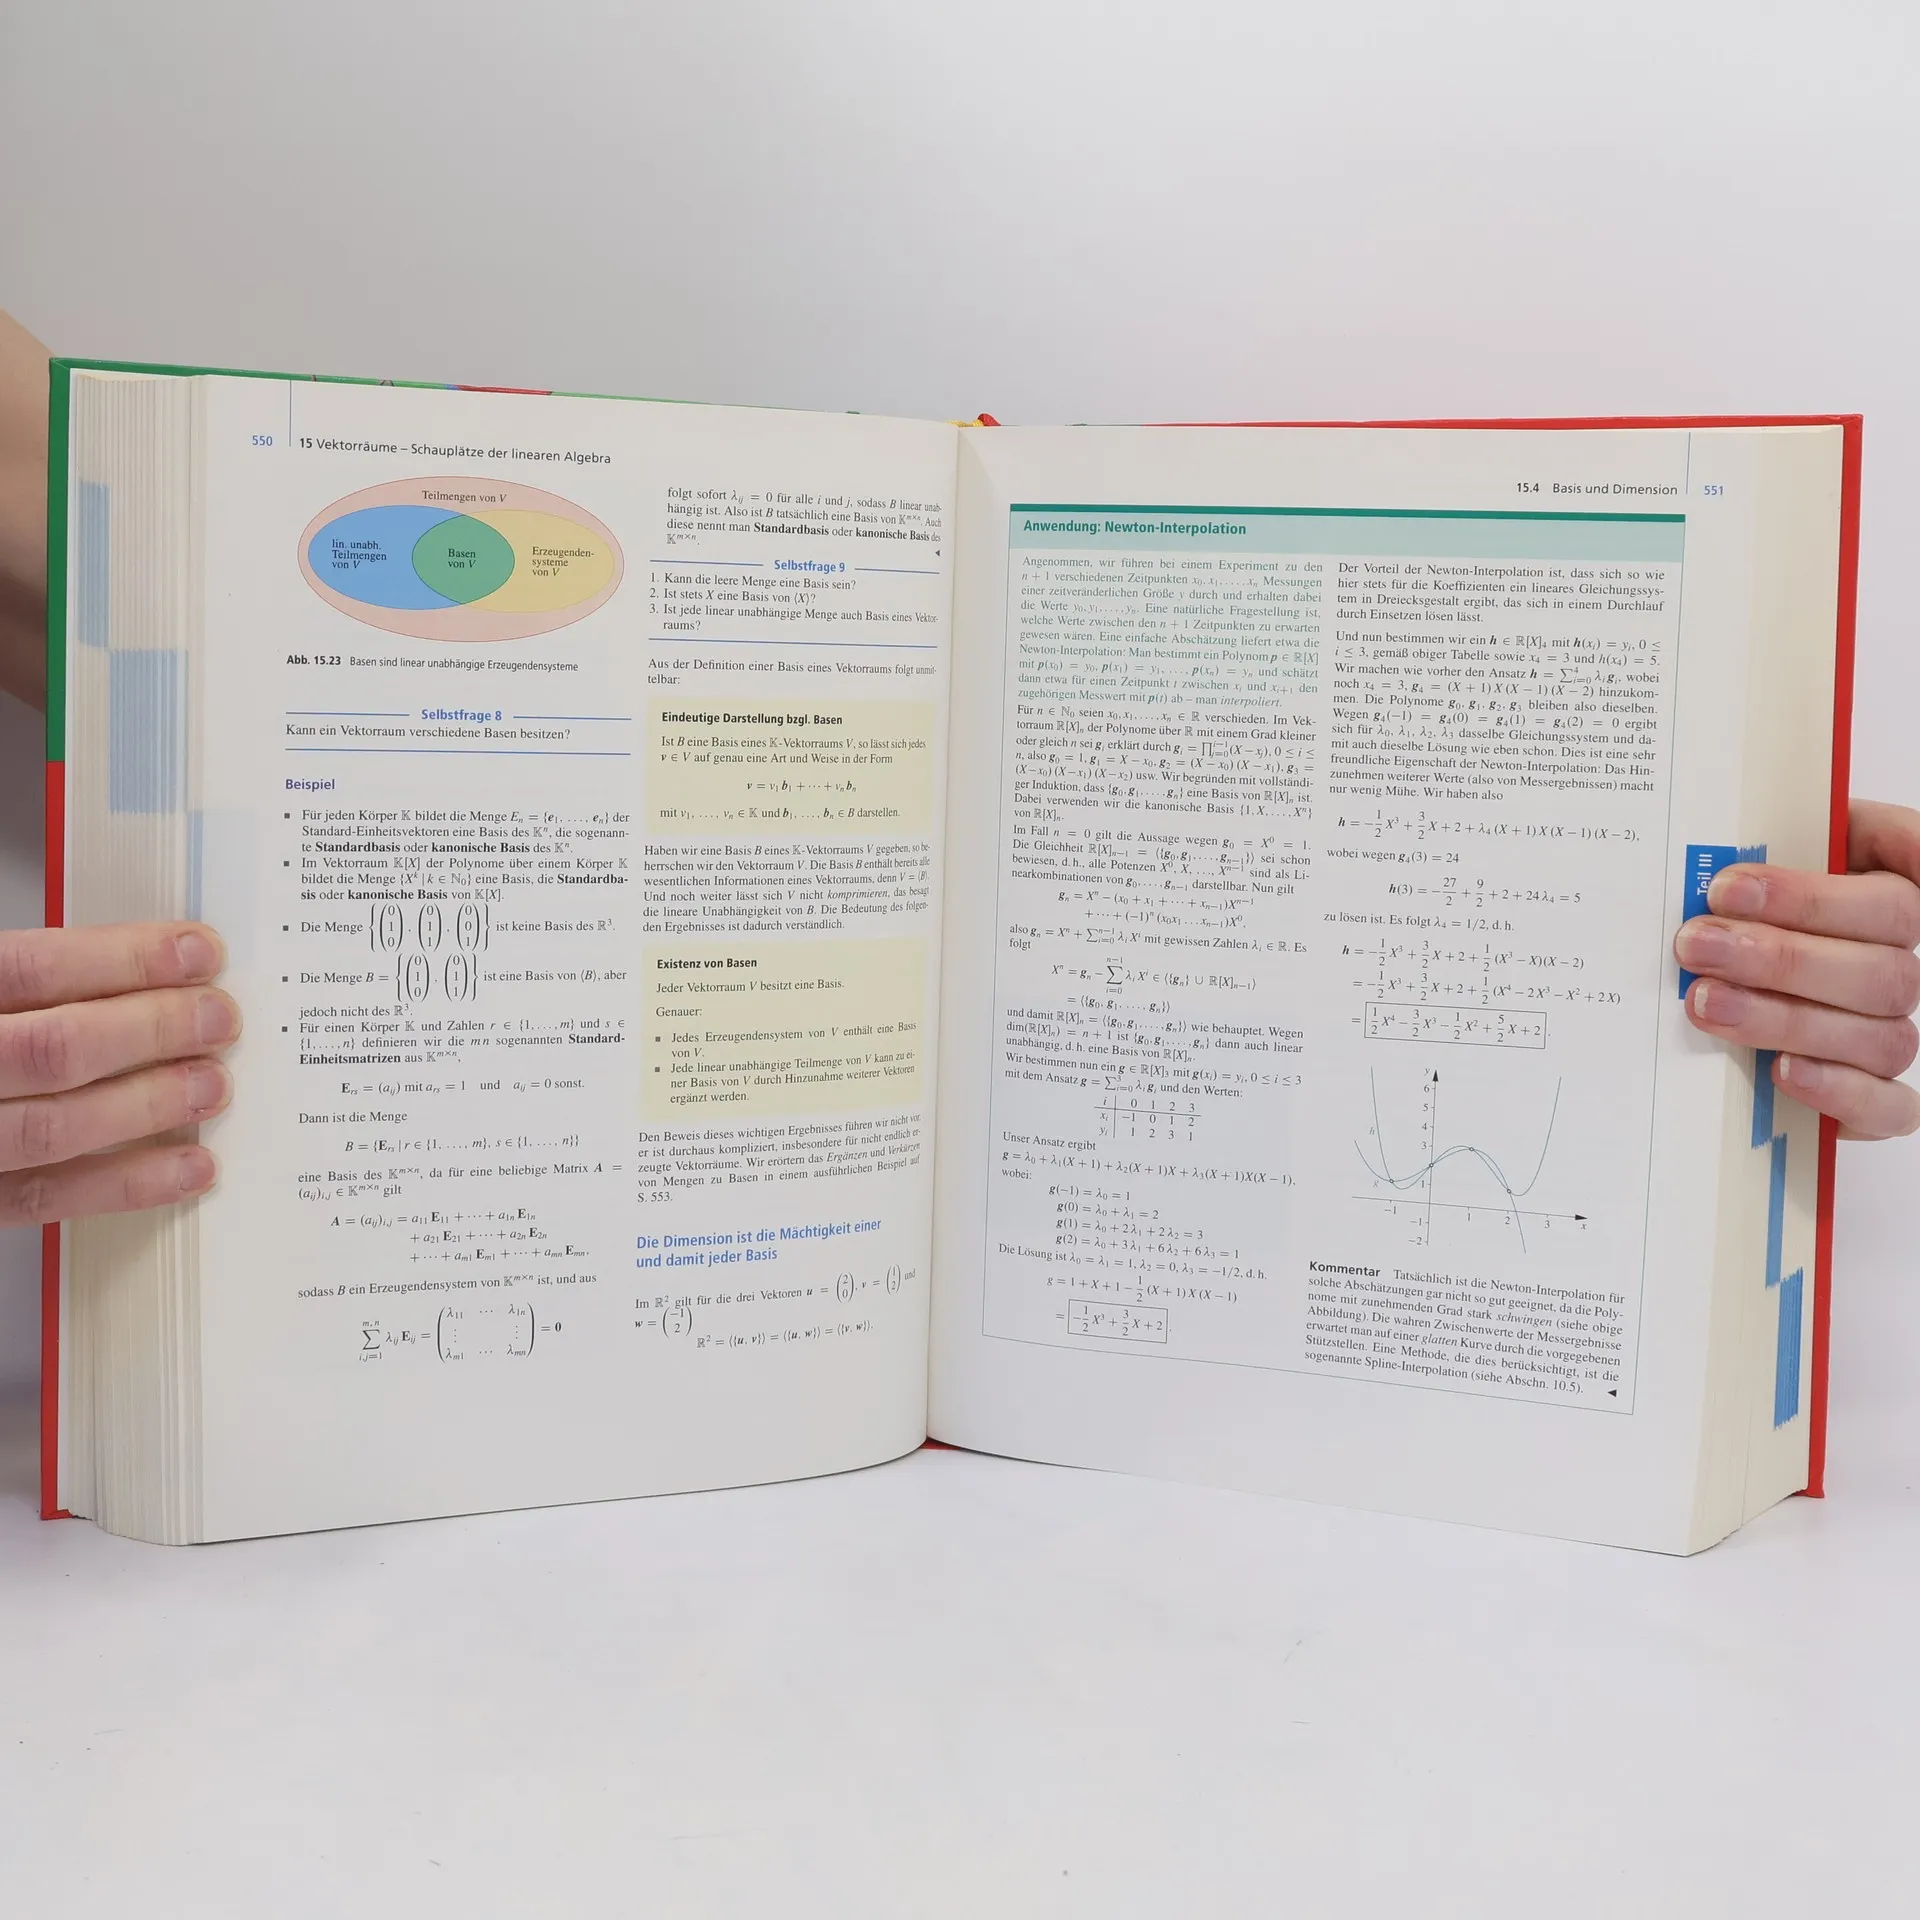 550
15 Vektorräume – Schauplätze der linearen Algebra
Teilmengen von V
lin. unabh.
Teilmengen
von V
Basen
von V
Erzeugenden-
systeme
von V
Abb. 15.23 Basen sind linear unabhängige Erzeugendensysteme
Selbstfrage 8
Kann ein Vektorraum verschiedene Basen besitzen?
Beispiel
▪ Für jeden Körper 𝕂 bildet die Menge Eₙ = {e₁, …, eₙ} der
Standard-Einheitsvektoren eine Basis des 𝕂ⁿ, die sogenann-
te Standardbasis oder kanonische Basis des 𝕂ⁿ.
▪ Im Vektorraum 𝕂[X] der Polynome über einem Körper 𝕂
bildet die Menge {Xᵏ | k ∈ ℕ₀} eine Basis, die Standardba-
sis oder kanonische Basis von 𝕂[X].
▪ Die Menge {(0 1 0), (0 1 1), (0 0 1)} ist keine Basis des ℝ³.
▪ Die Menge B = {(0 1 0), (0 1 1)} ist eine Basis von ⟨B⟩, aber
jedoch nicht des ℝ³.
▪ Für einen Körper 𝕂 und Zahlen r ∈ {1, …, m} und s ∈
{1, …, n} definieren wir die m n sogenannten Standard-
Einheitsmatrizen aus 𝕂ᵐˣⁿ,
E_rs = (a_ij) mit a_rs = 1 und a_ij = 0 sonst.
Dann ist die Menge
B = {E_rs | r ∈ {1, …, m}, s ∈ {1, …, n}}
eine Basis des 𝕂ᵐˣⁿ, da für eine beliebige Matrix A =
(a_ij)_i,j ∈ 𝕂ᵐˣⁿ gilt
A = (a_ij)_i,j = a₁₁ E₁₁ + ⋯ + a₁ₙ E₁ₙ
+ a₂₁ E₂₁ + ⋯ + a₂ₙ E₂ₙ
+ ⋯ + a_m1 E_m1 + ⋯ + a_mn E_mn,
sodass B ein Erzeugendensystem von 𝕂ᵐˣⁿ ist, und aus
∑_{i,j=1}^{m,n} λ_ij E_ij = (λ₁₁ ⋯ λ₁ₙ ⋮ ⋮ λ_m1 ⋯ λ_mn) = 0
folgt sofort λ_ij = 0 für alle i und j, sodass B linear unab-
hängig ist. Also ist B tatsächlich eine Basis von 𝕂ᵐˣⁿ. Auch
diese nennt man Standardbasis oder kanonische Basis des
𝕂ᵐˣⁿ. ◄
Selbstfrage 9
1. Kann die leere Menge eine Basis sein?
2. Ist stets X eine Basis von ⟨X⟩?
3. Ist jede linear unabhängige Menge auch Basis eines Vektor-
raums?
Aus der Definition einer Basis eines Vektorraums folgt unmit-
telbar:
Eindeutige Darstellung bzgl. Basen
Ist B eine Basis eines 𝕂-Vektorraums V, so lässt sich jedes
v ∈ V auf genau eine Art und Weise in der Form
v = v₁ b₁ + ⋯ + vₙ bₙ
mit v₁, …, vₙ ∈ 𝕂 und b₁, …, bₙ ∈ B darstellen.
Haben wir eine Basis B eines 𝕂-Vektorraums V gegeben, so be-
herrschen wir den Vektorraum V. Die Basis B enthält bereits alle
wesentlichen Informationen eines Vektorraums, denn V = ⟨B⟩.
Und noch weiter lässt sich V nicht komprimieren, das besagt
die lineare Unabhängigkeit von B. Die Bedeutung des folgen-
den Ergebnisses ist dadurch verständlich.
Existenz von Basen
Jeder Vektorraum V besitzt eine Basis.
Genauer:
▪ Jedes Erzeugendensystem von V enthält eine Basis
von V.
▪ Jede linear unabhängige Teilmenge von V kann zu ei-
ner Basis von V durch Hinzunahme weiterer Vektoren
ergänzt werden.
Den Beweis dieses wichtigen Ergebnisses führen wir nicht vor,
er ist durchaus kompliziert, insbesondere für nicht endlich er-
zeugte Vektorräume. Wir erörtern das Ergänzen und Verkürzen
von Mengen zu Basen in einem ausführlichen Beispiel auf
S. 553.
Die Dimension ist die Mächtigkeit einer
und damit jeder Basis
Im ℝ² gilt für die drei Vektoren u = (2 0), v = (1 2) und
w = (−1 2)
ℝ² = ⟨{u, v}⟩ = ⟨{u, w}⟩ = ⟨{v, w}⟩.
15.4 Basis und Dimension
551
Anwendung: Newton-Interpolation
Angenommen, wir führen bei einem Experiment zu den
n + 1 verschiedenen Zeitpunkten x₀, x₁, …, xₙ Messungen
einer zeitveränderlichen Größe y durch und erhalten dabei
die Werte y₀, y₁, …, yₙ. Eine natürliche Fragestellung ist,
welche Werte zwischen den n + 1 Zeitpunkten zu erwarten
gewesen wären. Eine einfache Abschätzung liefert etwa die
Newton-Interpolation: Man bestimmt ein Polynom p ∈ ℝ[X]
mit p(x₀) = y₀, p(x₁) = y₁, …, p(xₙ) = yₙ und schätzt
dann etwa für einen Zeitpunkt t zwischen xᵢ und xᵢ₊₁ den
zugehörigen Messwert mit p(t) ab – man interpoliert.
Für n ∈ ℕ₀ seien x₀, x₁, …, xₙ ∈ ℝ verschieden. Im Vek-
torraum ℝ[X]ₙ der Polynome über ℝ mit einem Grad kleiner
oder gleich n sei gᵢ erklärt durch gᵢ = ∏_{j=0}^{i−1}(X − xⱼ), 0 ≤ i ≤
n, also g₀ = 1, g₁ = X − x₀, g₂ = (X − x₀) (X − x₁), g₃ =
(X−x₀) (X−x₁) (X−x₂) usw. Wir begründen mit vollständi-
ger Induktion, dass {g₀, g₁, …, gₙ} eine Basis von ℝ[X]ₙ ist.
Dabei verwenden wir die kanonische Basis {1, X, …, Xⁿ}
von ℝ[X]ₙ.
Im Fall n = 0 gilt die Aussage wegen g₀ = X⁰ = 1.
Die Gleichheit ℝ[X]ₙ₋₁ = ⟨{g₀, g₁, …, gₙ₋₁}⟩ sei schon
bewiesen, d. h., alle Potenzen X⁰, X, …, Xⁿ⁻¹ sind als Li-
nearkombinationen von g₀, …, gₙ₋₁ darstellbar. Nun gilt
gₙ = Xⁿ − (x₀ + x₁ + ⋯ + xₙ₋₁)Xⁿ⁻¹
+ ⋯ + (−1)ⁿ (x₀x₁ … xₙ₋₁)X⁰,
also gₙ = Xⁿ + ∑_{i=0}^{n−1} λᵢ Xⁱ mit gewissen Zahlen λᵢ ∈ ℝ. Es
folgt
Xⁿ = gₙ − ∑_{i=0}^{n−1} λᵢ Xⁱ ∈ ⟨{gₙ} ∪ ℝ[X]ₙ₋₁⟩
= ⟨{g₀, g₁, …, gₙ}⟩
und damit ℝ[X]ₙ = ⟨{g₀, g₁, …, gₙ}⟩ wie behauptet. Wegen
dim(ℝ[X]ₙ) = n + 1 ist {g₀, g₁, …, gₙ} dann auch linear
unabhängig, d. h. eine Basis von ℝ[X]ₙ.
Wir bestimmen nun ein g ∈ ℝ[X]₃ mit g(xᵢ) = yᵢ, 0 ≤ i ≤ 3
mit dem Ansatz g = ∑_{i=0}^{3} λᵢ gᵢ und den Werten:
i 0 1 2 3
xᵢ −1 0 1 2
yᵢ 1 2 3 1
Unser Ansatz ergibt
g = λ₀ + λ₁(X + 1) + λ₂(X + 1)X + λ₃(X + 1)X(X − 1),
wobei:
g(−1) = λ₀ = 1
g(0) = λ₀ + λ₁ = 2
g(1) = λ₀ + 2 λ₁ + 2 λ₂ = 3
g(2) = λ₀ + 3 λ₁ + 6 λ₂ + 6 λ₃ = 1
Die Lösung ist λ₀ = λ₁ = 1, λ₂ = 0, λ₃ = −1/2, d. h.
g = 1 + X + 1 − 1/2 (X + 1) X (X − 1)
= −1/2 X³ + 3/2 X + 2.
Der Vorteil der Newton-Interpolation ist, dass sich so wie
hier stets für die Koeffizienten ein lineares Gleichungssys-
tem in Dreiecksgestalt ergibt, das sich in einem Durchlauf
durch Einsetzen lösen lässt.
Und nun bestimmen wir ein h ∈ ℝ[X]₄ mit h(xᵢ) = yᵢ, 0 ≤
i ≤ 3, gemäß obiger Tabelle sowie x₄ = 3 und h(x₄) = 5.
Wir machen wie vorher den Ansatz h = ∑_{i=0}^{4} λᵢ gᵢ, wobei
noch x₄ = 3, g₄ = (X + 1) X (X − 1) (X − 2) hinzukom-
men. Die Polynome g₀, g₁, g₂, g₃ bleiben also dieselben.
Wegen g₄(−1) = g₄(0) = g₄(1) = g₄(2) = 0 ergibt
sich für λ₀, λ₁, λ₂, λ₃ dasselbe Gleichungssystem und da-
mit auch dieselbe Lösung wie eben schon. Dies ist eine sehr
freundliche Eigenschaft der Newton-Interpolation: Das Hin-
zunehmen weiterer Werte (also von Messergebnissen) macht
nur wenig Mühe. Wir haben also
h = −1/2 X³ + 3/2 X + 2 + λ₄ (X + 1) X (X − 1) (X − 2),
wobei wegen g₄(3) = 24
h(3) = −27/2 + 9/2 + 2 + 24 λ₄ = 5
zu lösen ist. Es folgt λ₄ = 1/2, d. h.
h = −1/2 X³ + 3/2 X + 2 + 1/2 (X³ − X)(X − 2)
= −1/2 X³ + 3/2 X + 2 + 1/2 (X⁴ − 2 X³ − X² + 2 X)
= 1/2 X⁴ − 3/2 X³ − 1/2 X² + 5/2 X + 2.
y
6
5
4
3
h
g
1
−1
1
2
3
x
−1
−2
Kommentar Tatsächlich ist die Newton-Interpolation für
solche Abschätzungen gar nicht so gut geeignet, da die Poly-
nome mit zunehmenden Grad stark schwingen (siehe obige
Abbildung). Die wahren Zwischenwerte der Messergebnisse
erwartet man auf einer glatten Kurve durch die vorgegebenen
Stützstellen. Eine Methode, die dies berücksichtigt, ist die
sogenannte Spline-Interpolation (siehe Abschn. 10.5). ◄
Teil III